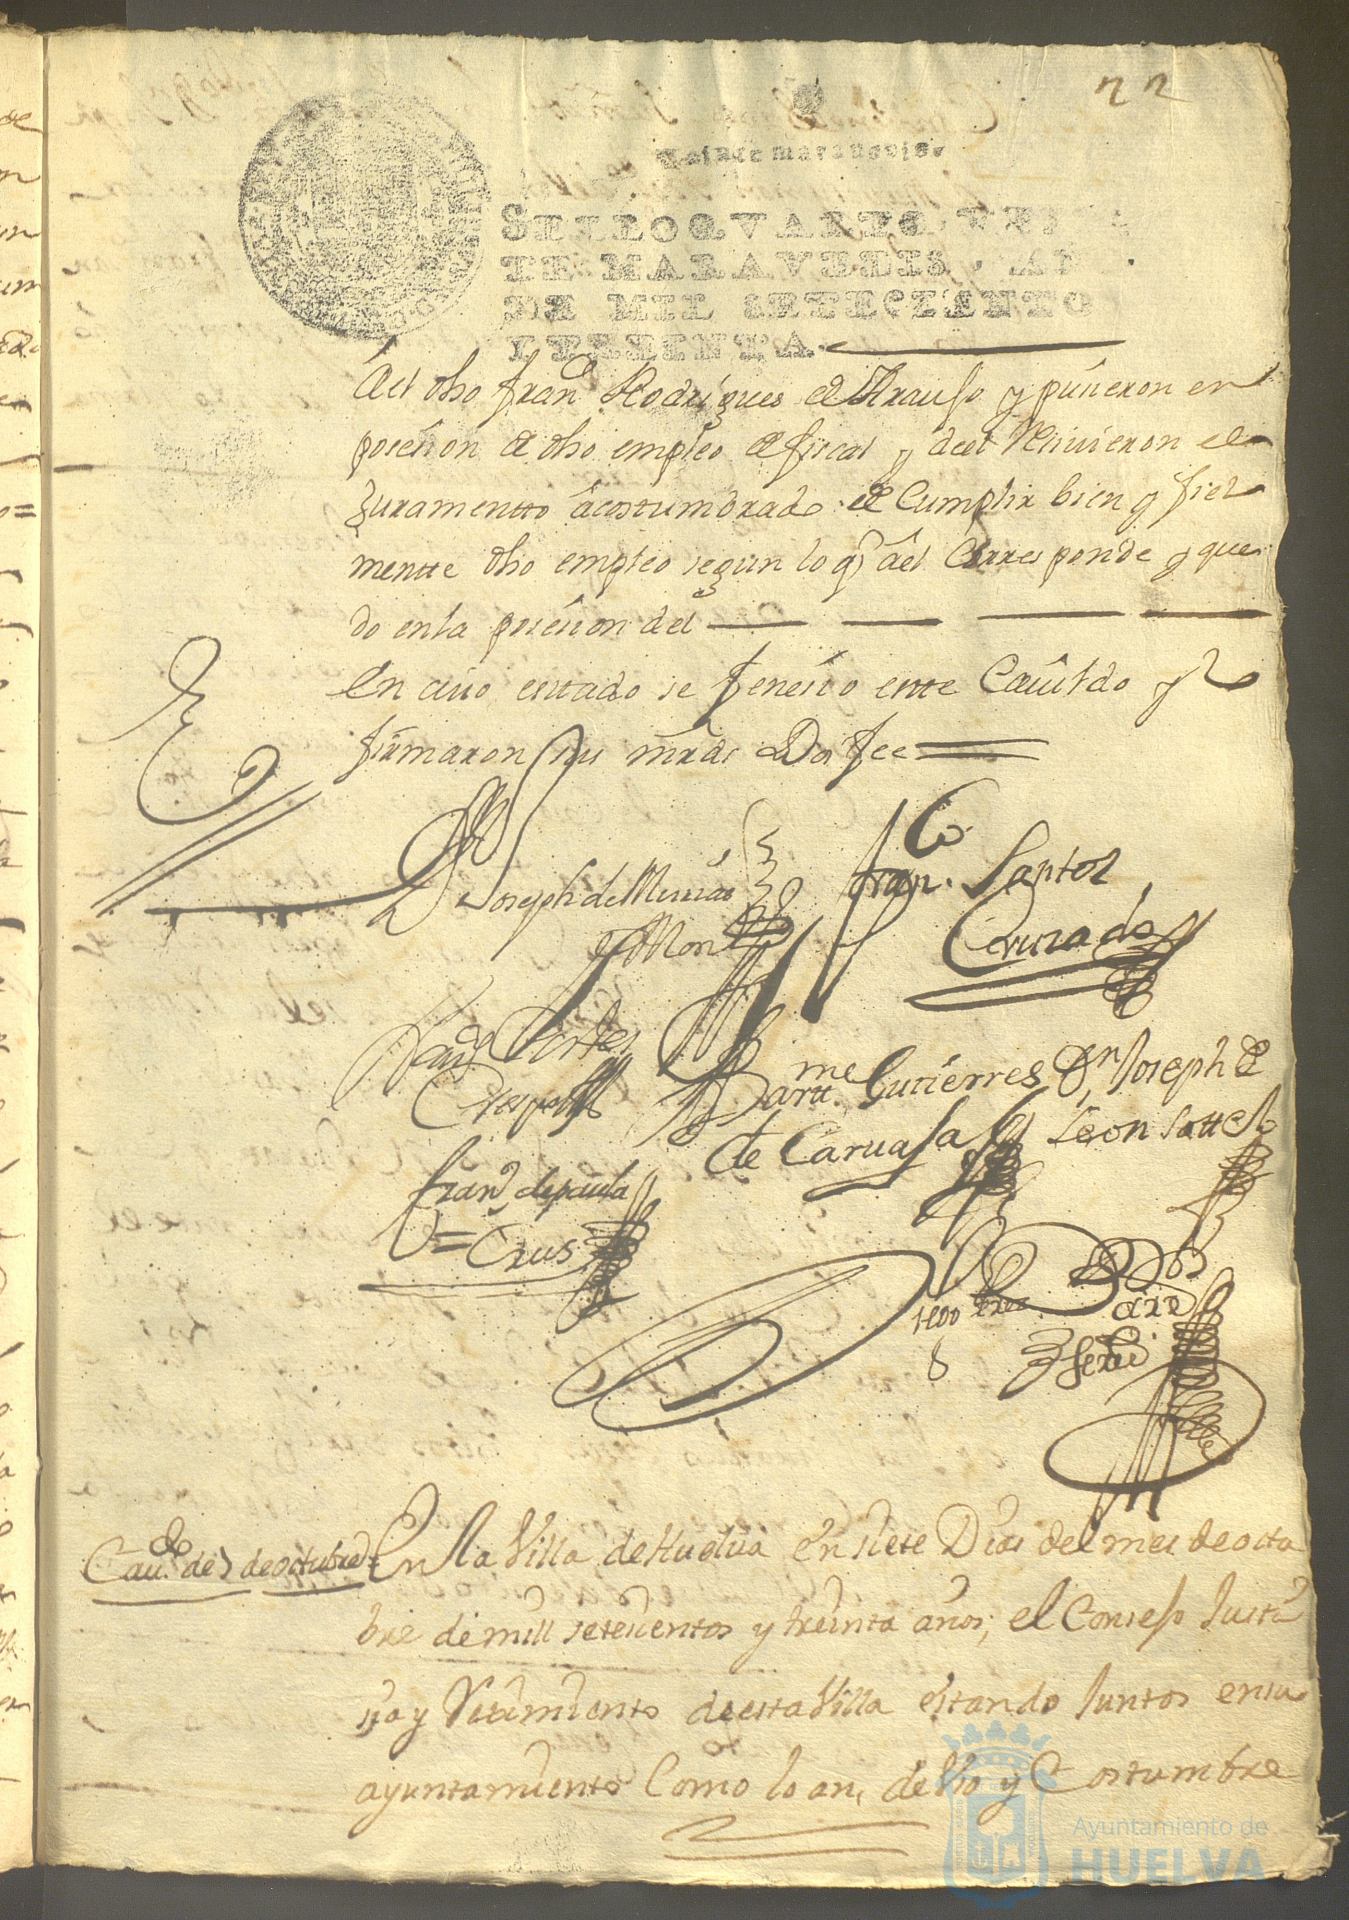 22
Veinte maravedis.
SELLO QVARTO, VEIN
TE MARAVEDIS, AÑO
DE MIL SETECIENTOS
Y TREINTA.
del dho Fran.co Rodrigues de Araujo y pusieron en
posesion de dho empleo de fiscal y deel Resivieron el
Juramentto acostumbrado de Cumplir bien y fiel
mentte dho empleo segun lo q.e a el Corresponde y que
do en la posesion del
En cuio estado se fenesio este Cauildo y
firmaron sus mrds Doi fee
Joseph de
Fran.co Santos
Cruzado
Cortes
Crespo
Bartt.me Gutierres
de Caruajal
Dn Joseph de
Leon
Fran.co de paula
Crus
Cau.do de 7 de octubre
En la Villa de Huelua en siete Dias del mes de octu
bre de mill setesientos y treinta años, el Consejo Justi
sia y Reximiento de esta Villa estando Juntos en su
ayuntamiento Como lo an, de Vso y Costumbre
Ayuntamiento de
HUELVA